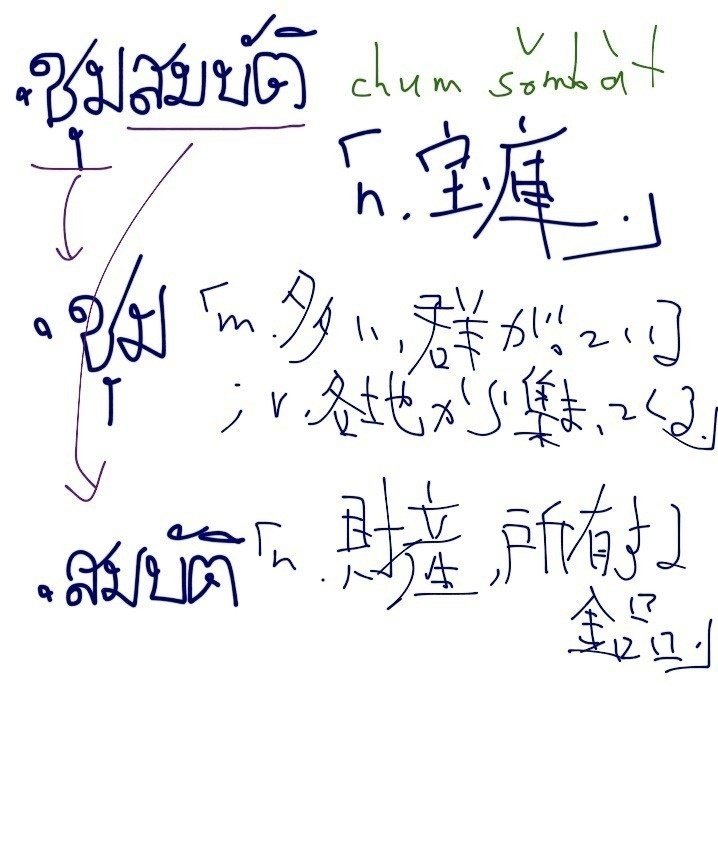 .ชุมสมบัติ chum sǒmbàt
「n.宝庫.」
.ชุม「m.多い,群がっている
; v.各地から集まってくる.」
.สมบัติ「n.財産,所有する
金品.」